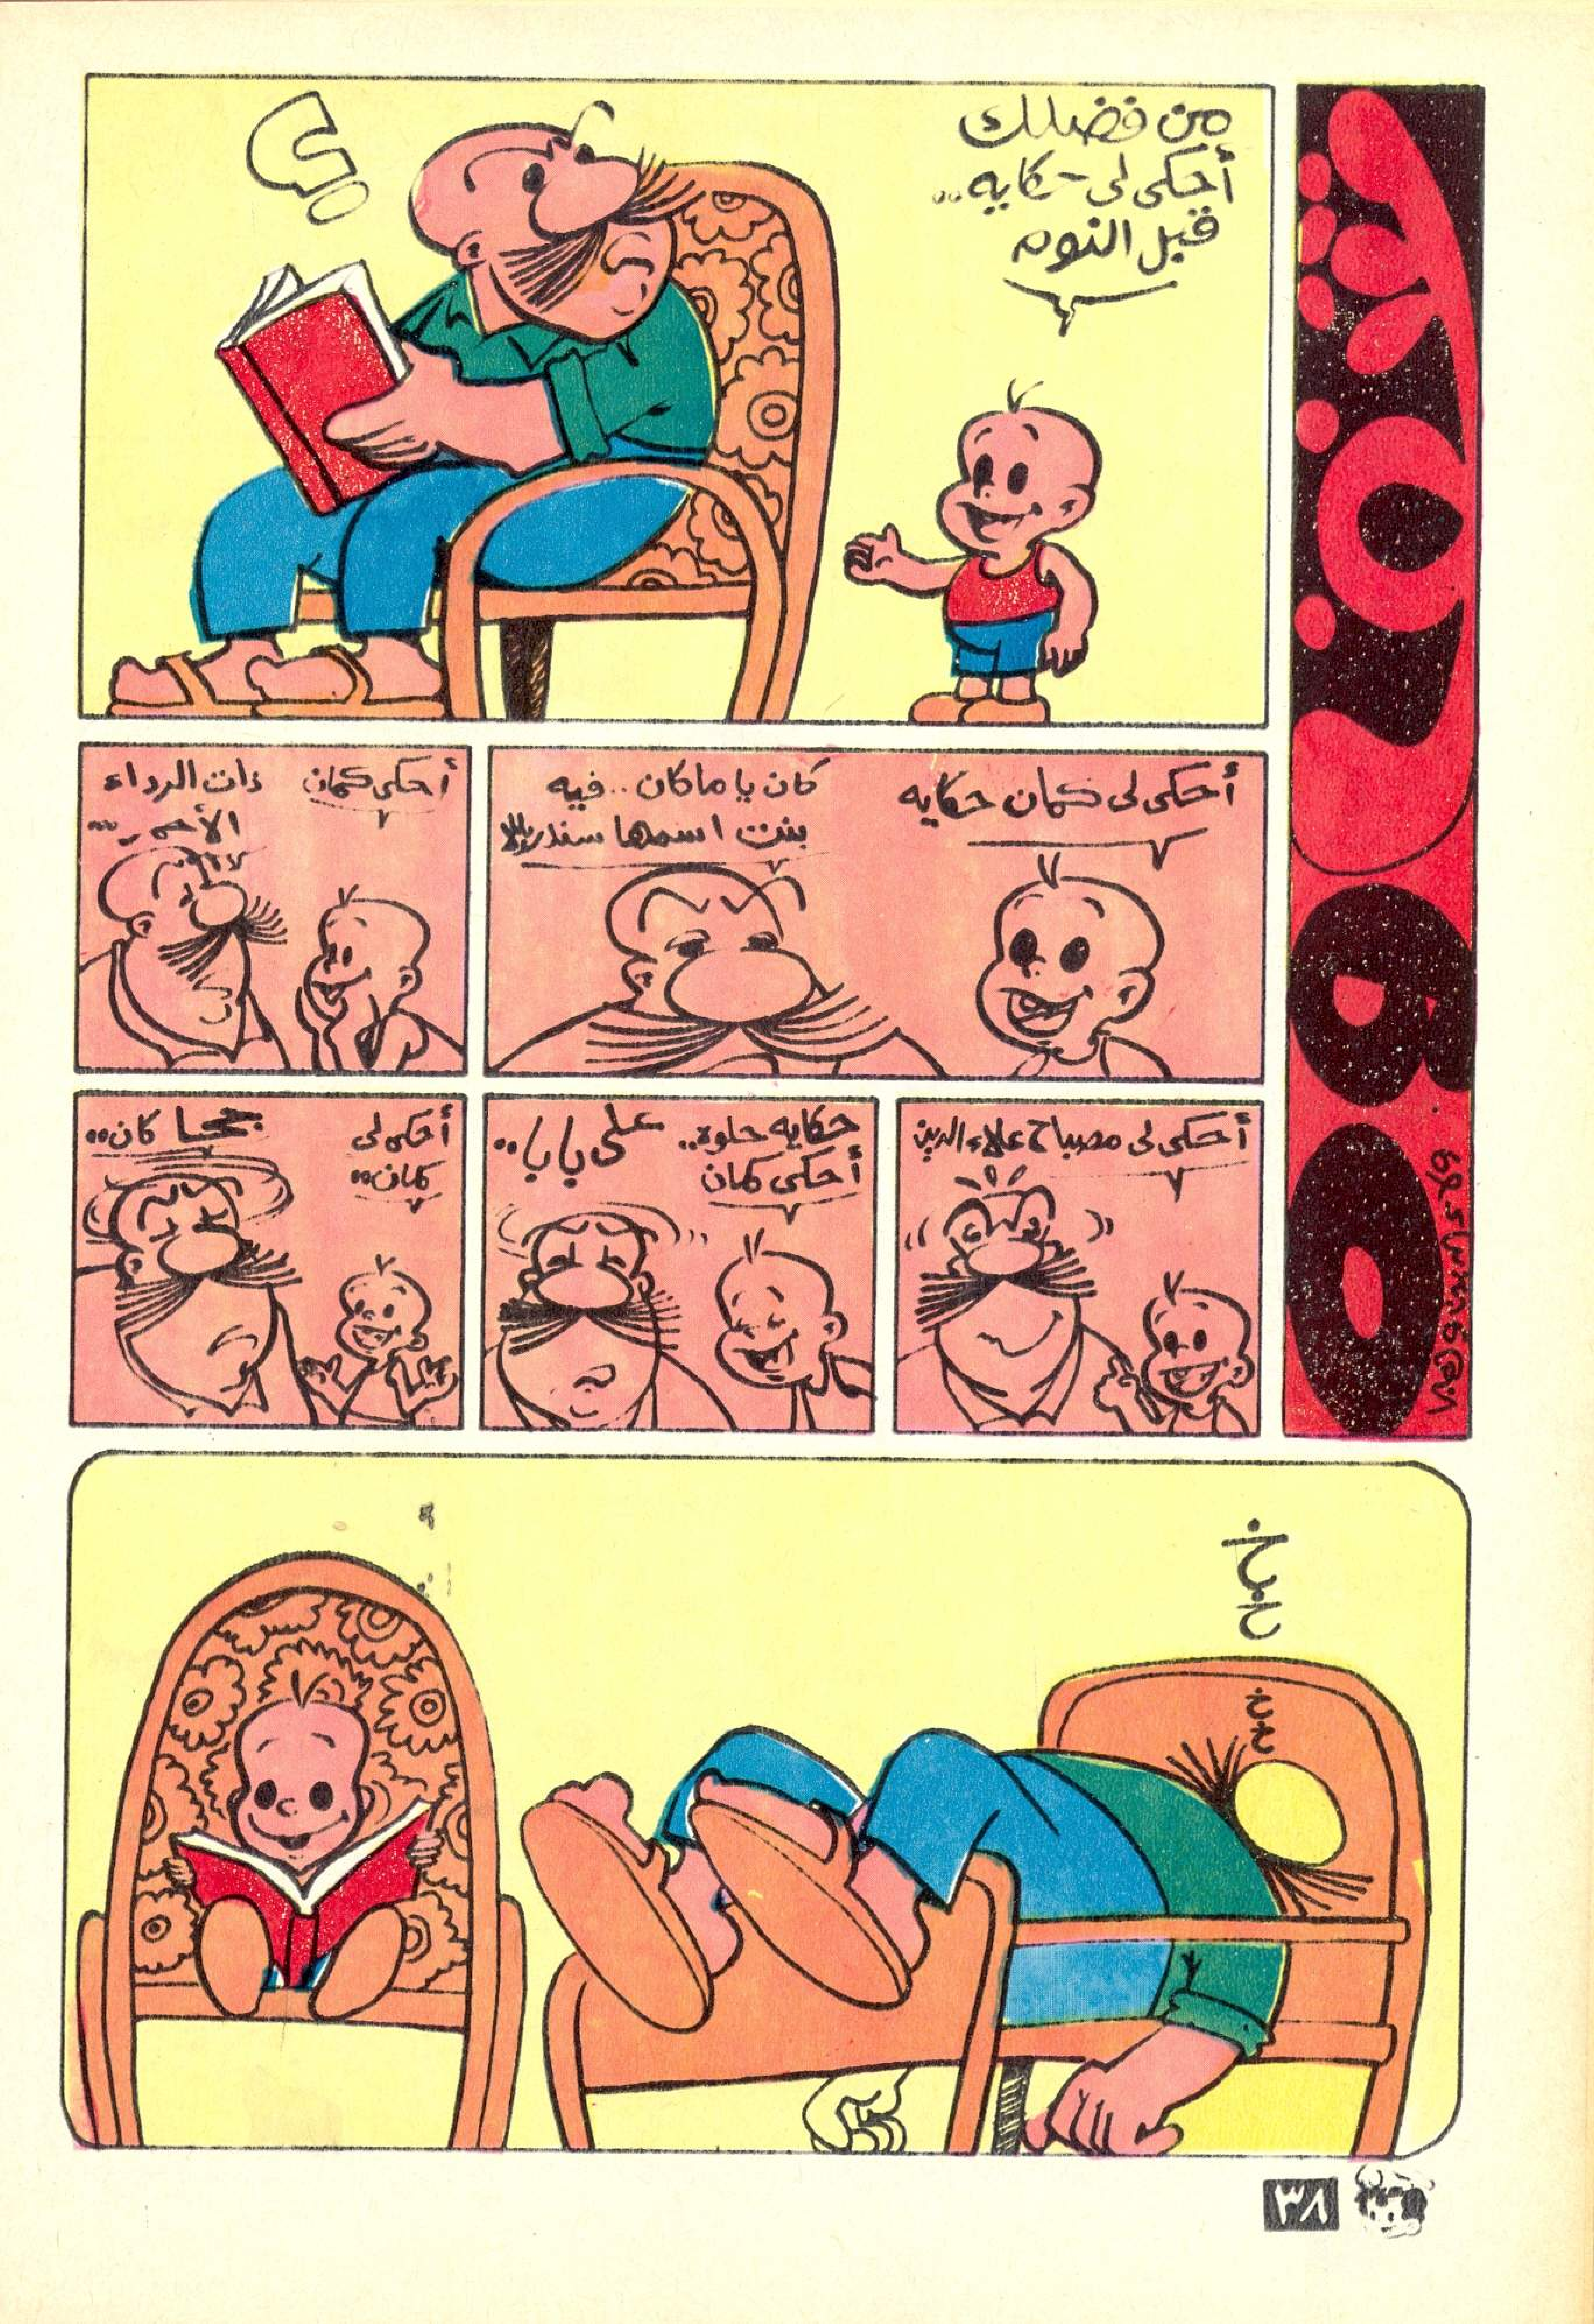 من فضلك
أحكى لى حكايه..
قبل النوم
؟
أحكى لى كمان حكايه
كان يا ماكان.. فيه
بنت اسمها سندريلا
أحكى كمان
ذات الرداء
الأحمر...
أحكى لى مصباح علاء الدين
حكايه حلوة..
أحكى كمان
على بابا..
أحكى لى
كمان..
جحا كان..
خ خ
خ خ
BO
٣٨